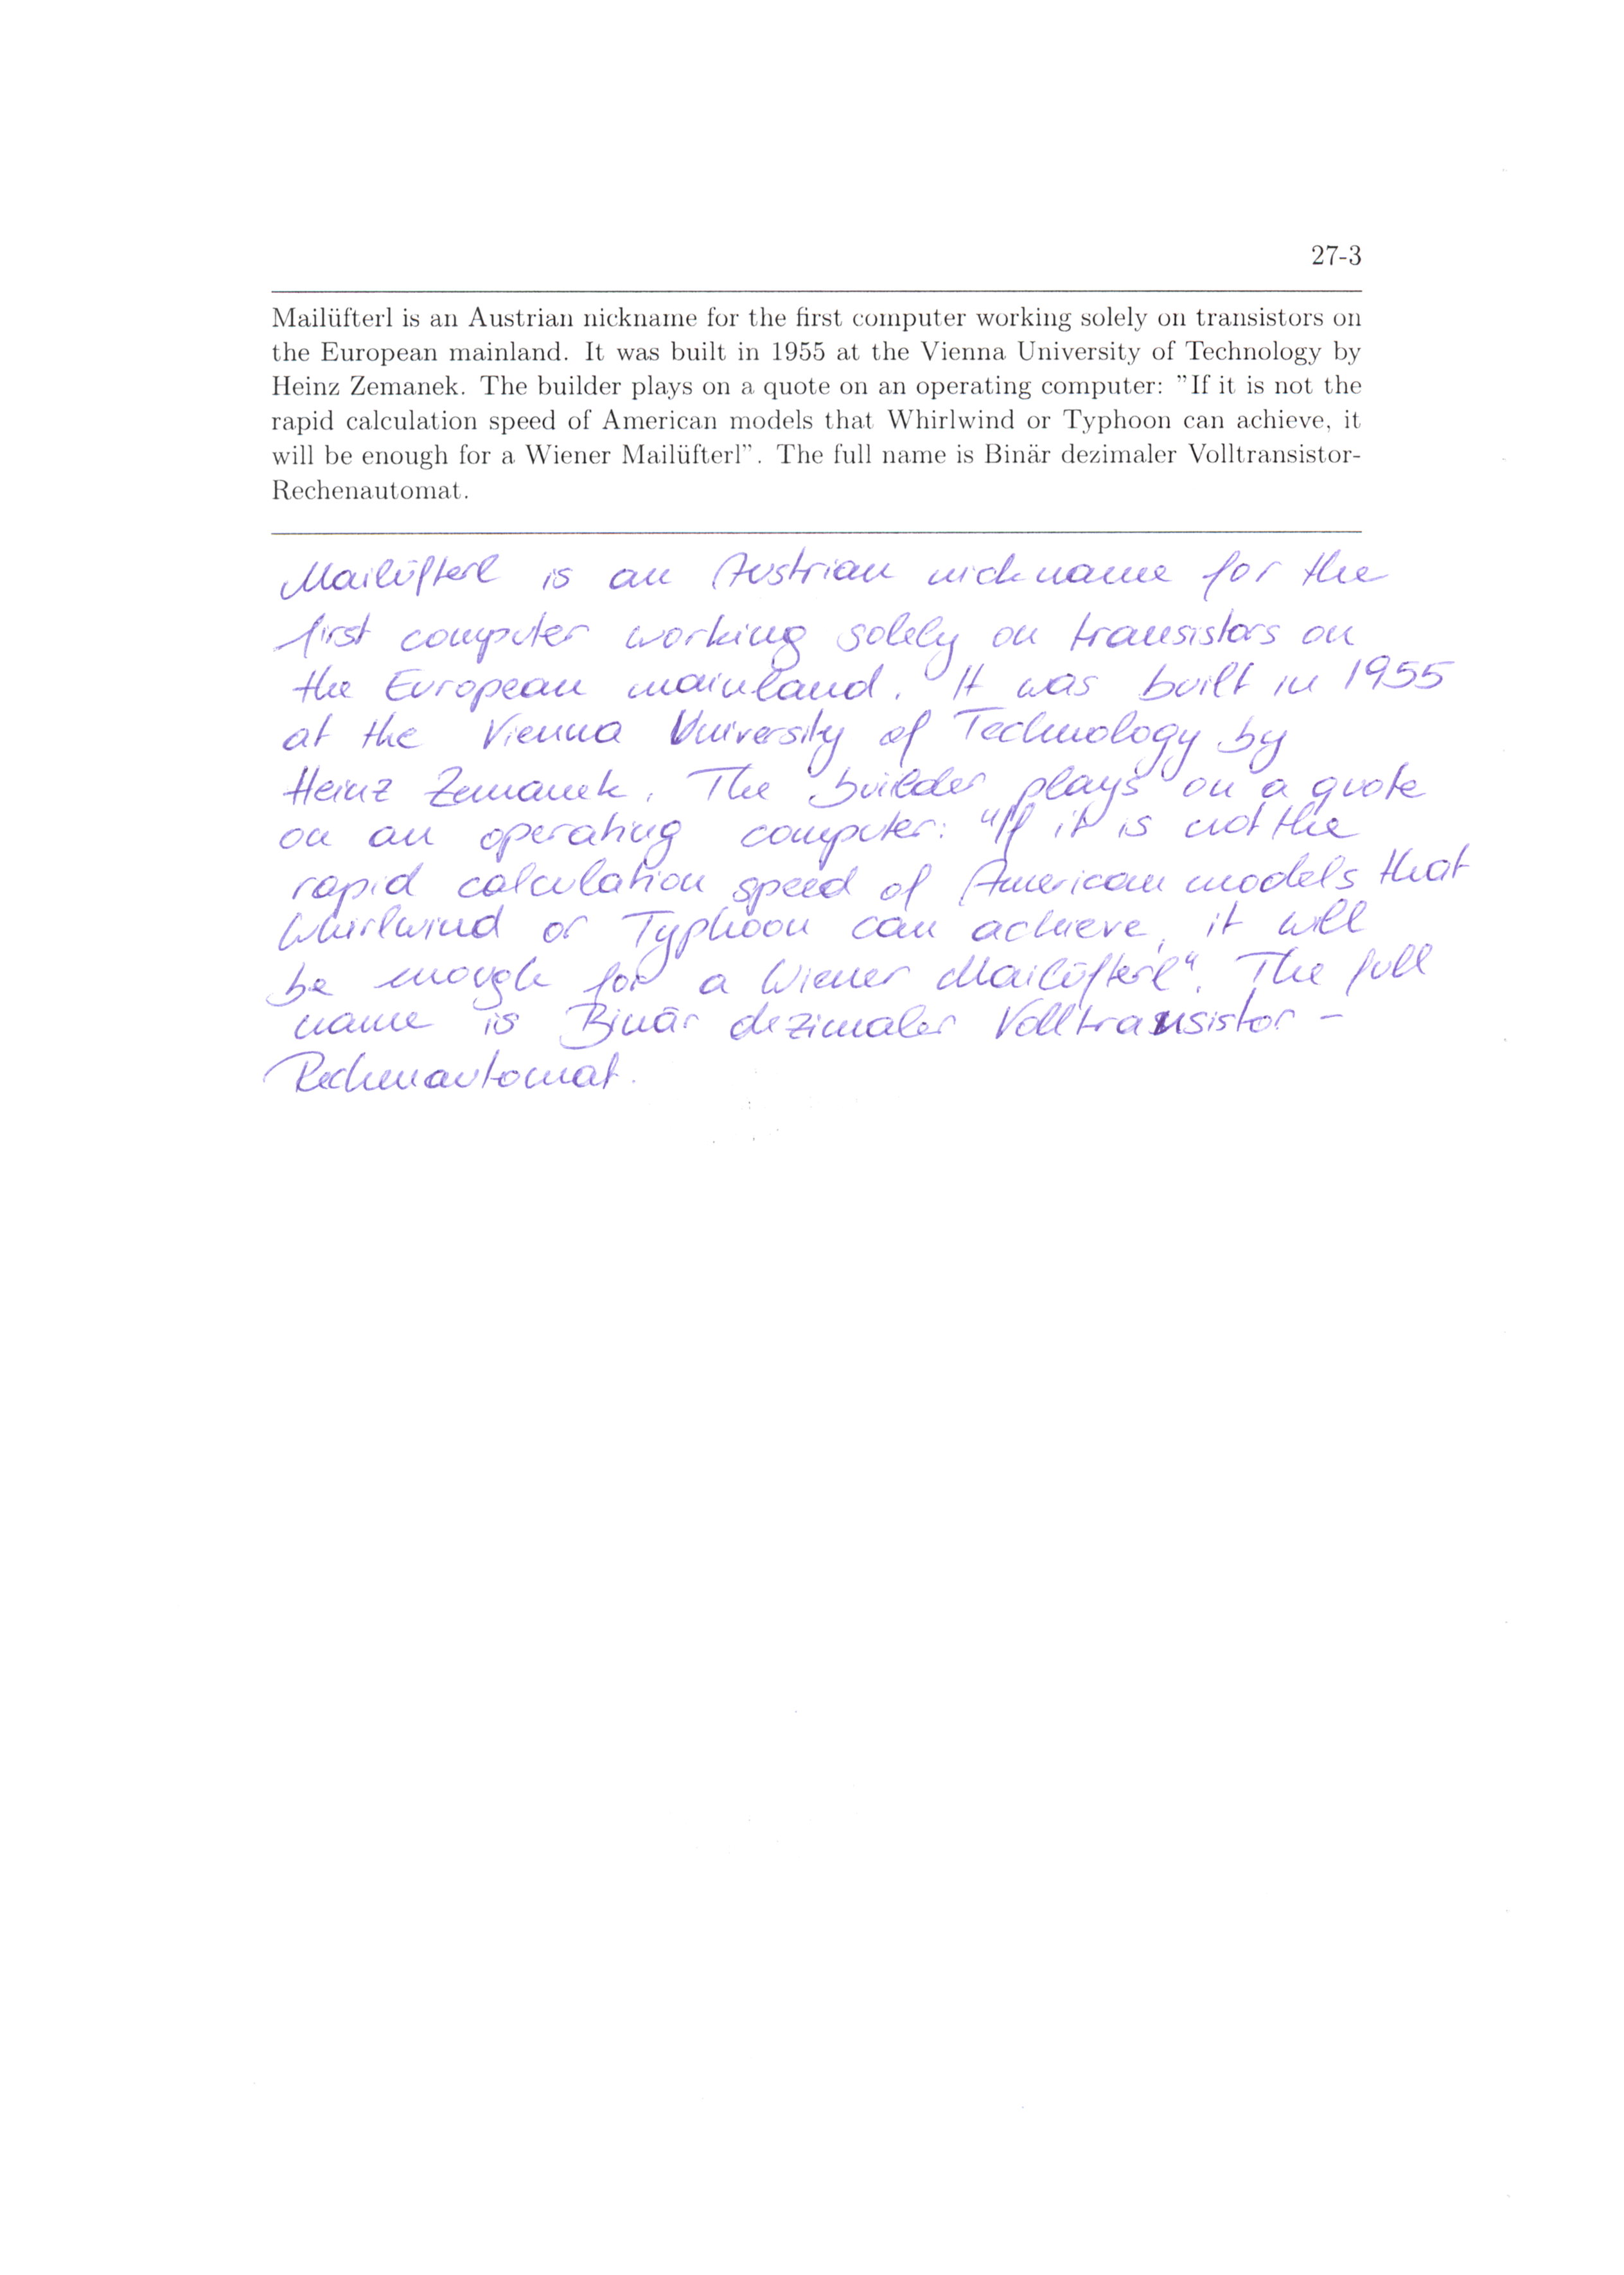 27-3
Mailüfterl is an Austrian nickname for the first computer working solely on transistors on
the European mainland. It was built in 1955 at the Vienna University of Technology by
Heinz Zemanek. The builder plays on a quote on an operating computer: ”If it is not the
rapid calculation speed of American models that Whirlwind or Typhoon can achieve, it
will be enough for a Wiener Mailüfterl”. The full name is Binär dezimaler Volltransistor-
Rechenautomat.
Mailüfterl is an Austrian nickname for the
first computer working solely on transistors on
the European mainland. It was built in 1955
at the Vienna University of Technology by
Heinz Zemanek. The builder plays on a quote
on an operating computer: "If it is not the
rapid calculation speed of American models that
Whirlwind or Typhoon can achieve, it will
be enough for a Wiener Mailüfterl". The full
name is Binär dezimaler Volltransistor -
Rechenautomat.